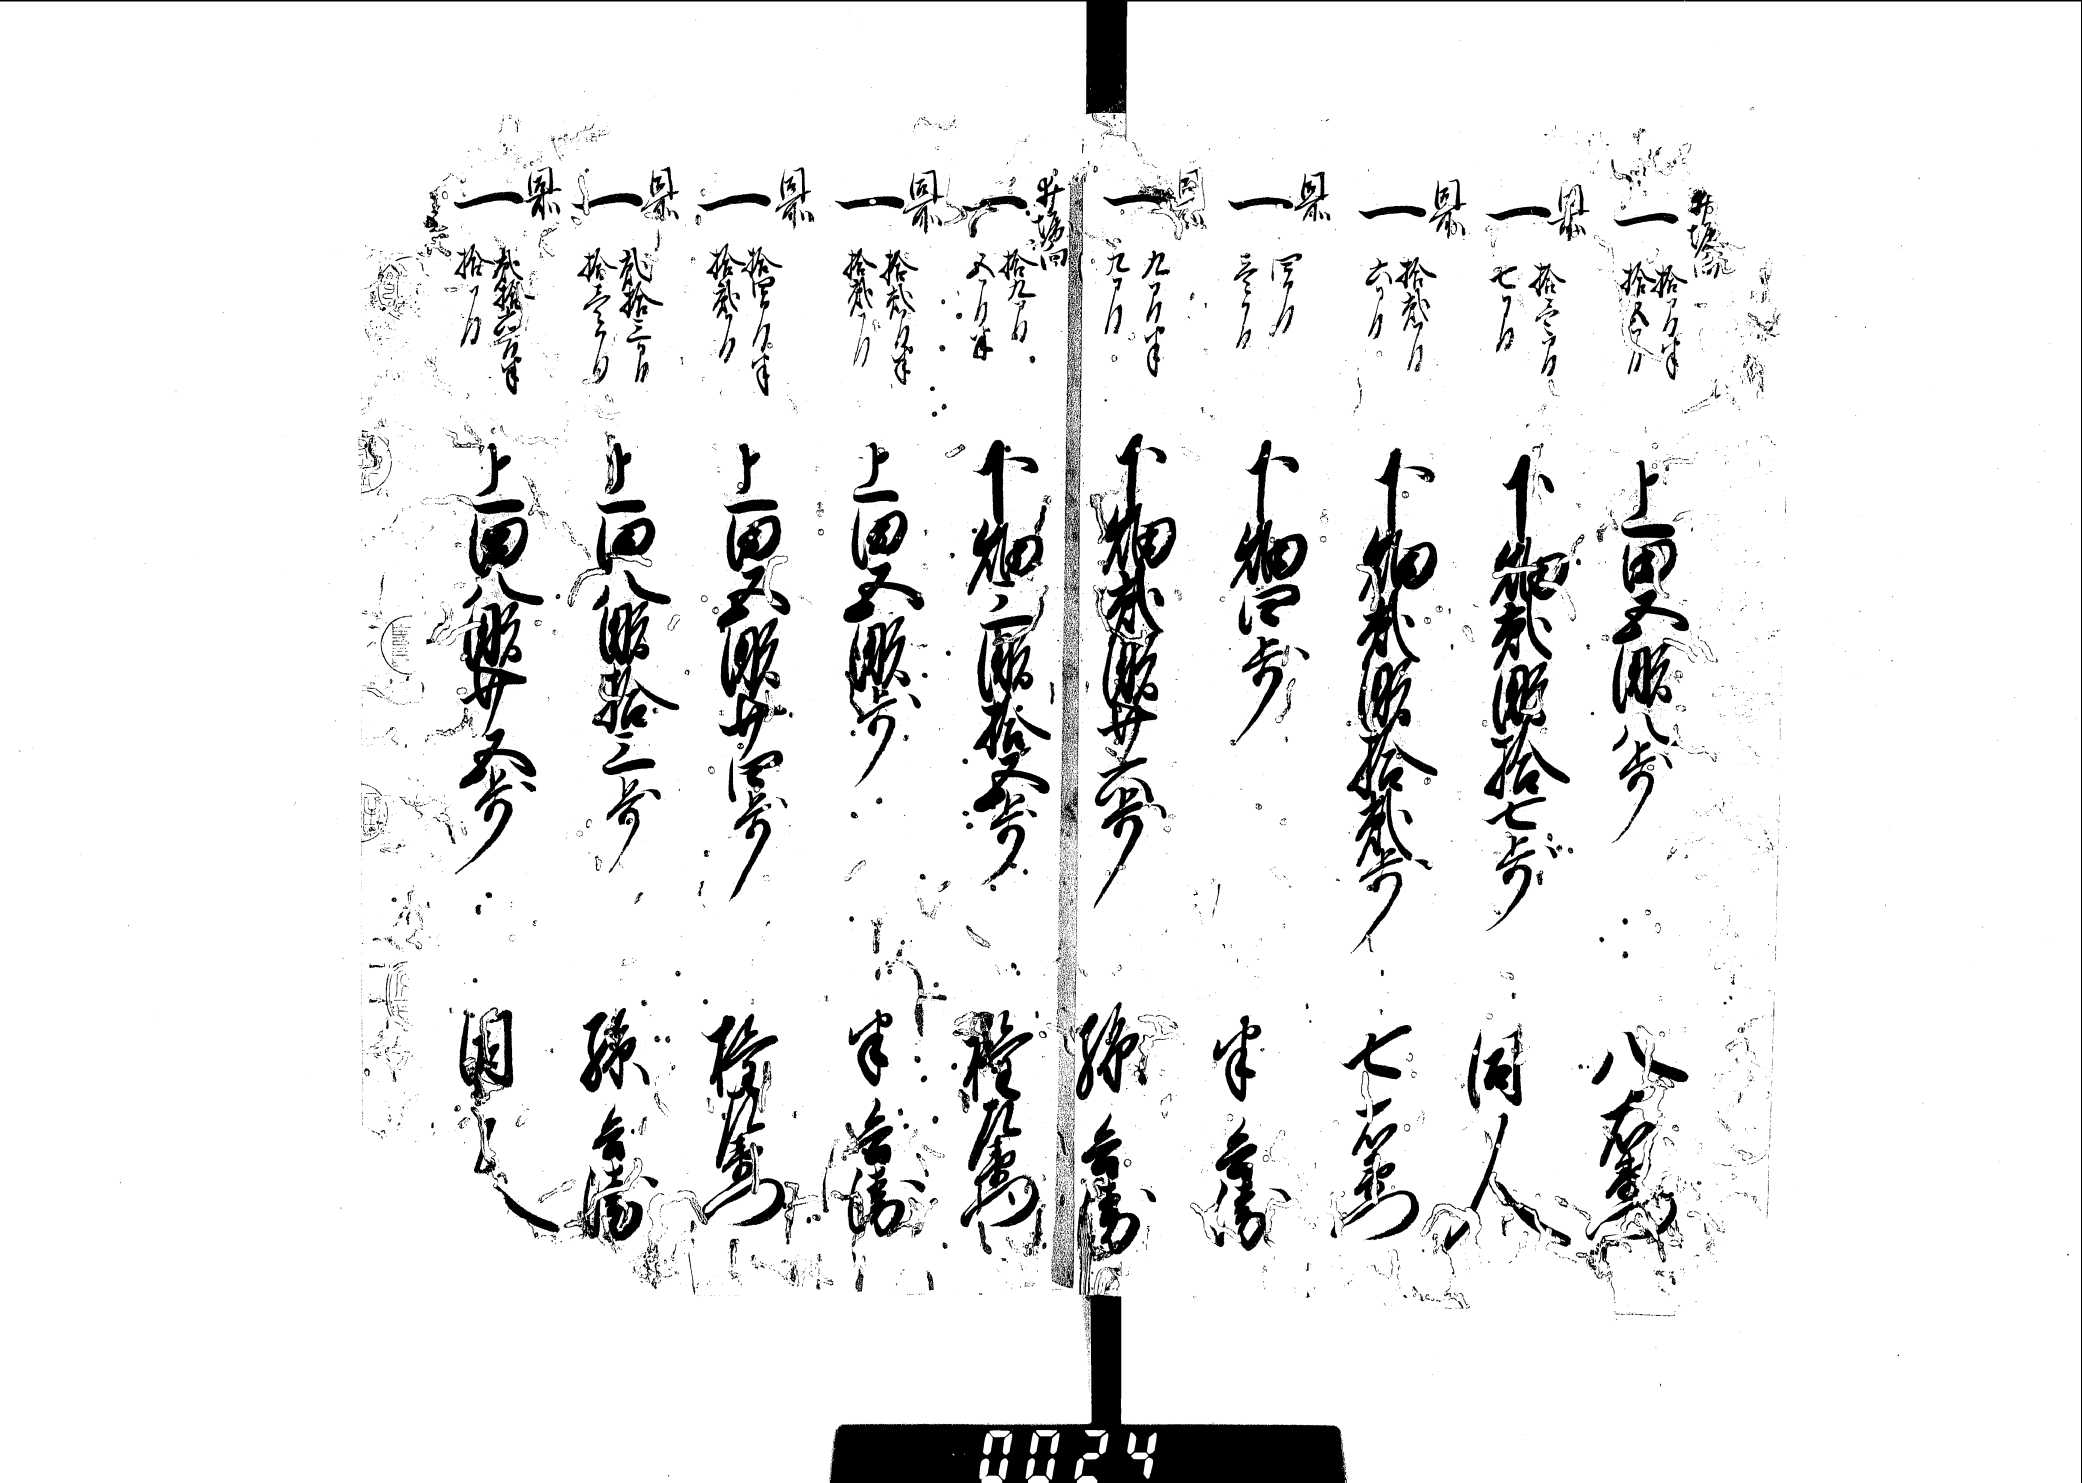 井堀流
一 拾間半
拾五間
上田五畝八歩 八右衛門
同所
一 拾壱間
七間
下畑貳畝拾七歩 同人
同所
一 拾貳間
六間
下畑貳畝拾貳歩 七右衛門
同所
一 四間
壱間
下畑四歩 半兵衛
同所
一 九間半
九間
下畑貳畝廿六歩 孫兵衛
井堀向
一 拾九間
五間半
下畑三畝拾五歩 権左衛門
同所
一 拾貳間半
拾貳間
上田五畝歩 半兵衛
同所
一 拾四間半
拾貳間
上田五畝廿四歩 権左衛門
同所
一 貳拾三間
拾壱間
上田八畝拾三歩 孫兵衛
同所
一 貳拾六間半
拾間
上田八畝廿五歩 同人
0024